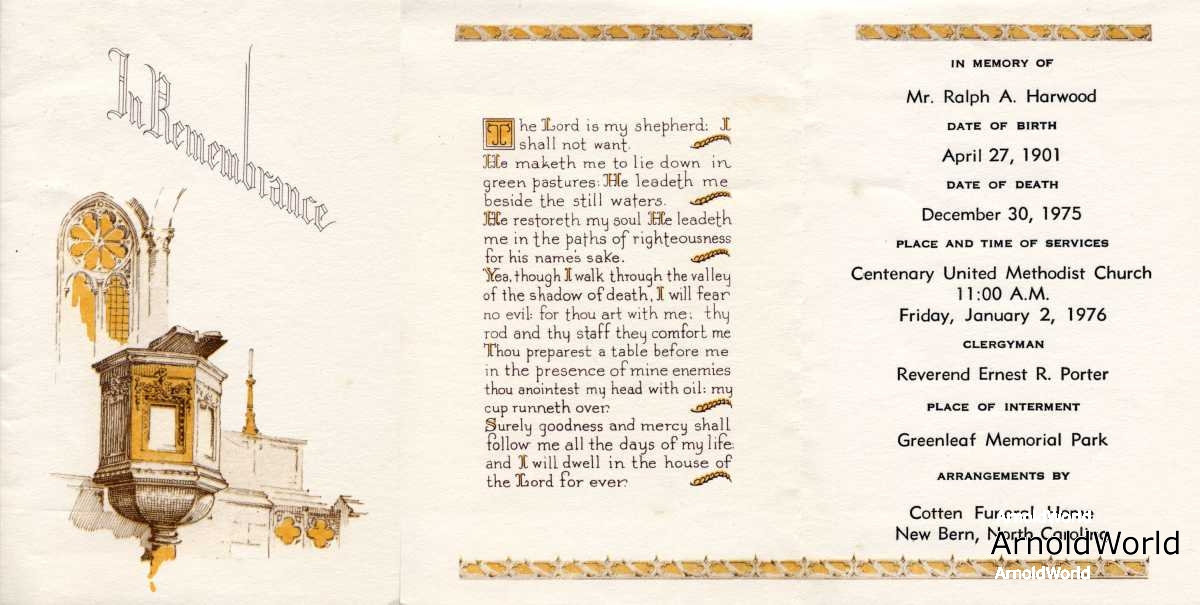 In Remembrance
The Lord is my shepherd; I
shall not want.
He maketh me to lie down in
green pastures: He leadeth me
beside the still waters.
He restoreth my soul He leadeth
me in the paths of righteousness
for his name's sake.
Yea, though I walk through the valley
of the shadow of death, I will fear
no evil: for thou art with me; thy
rod and thy staff they comfort me
Thou preparest a table before me
in the presence of mine enemies
thou anointest my head with oil: my
cup runneth over.
Surely goodness and mercy shall
follow me all the days of my life:
and I will dwell in the house of
the Lord for ever.
IN MEMORY OF
Mr. Ralph A. Harwood
DATE OF BIRTH
April 27, 1901
DATE OF DEATH
December 30, 1975
PLACE AND TIME OF SERVICES
Centenary United Methodist Church
11:00 A.M.
Friday, January 2, 1976
CLERGYMAN
Reverend Ernest R. Porter
PLACE OF INTERMENT
Greenleaf Memorial Park
ARRANGEMENTS BY
Cotten Funeral Home
New Bern, North Carolina
ArnoldWorld
ArnoldWorld
ArnoldWorld